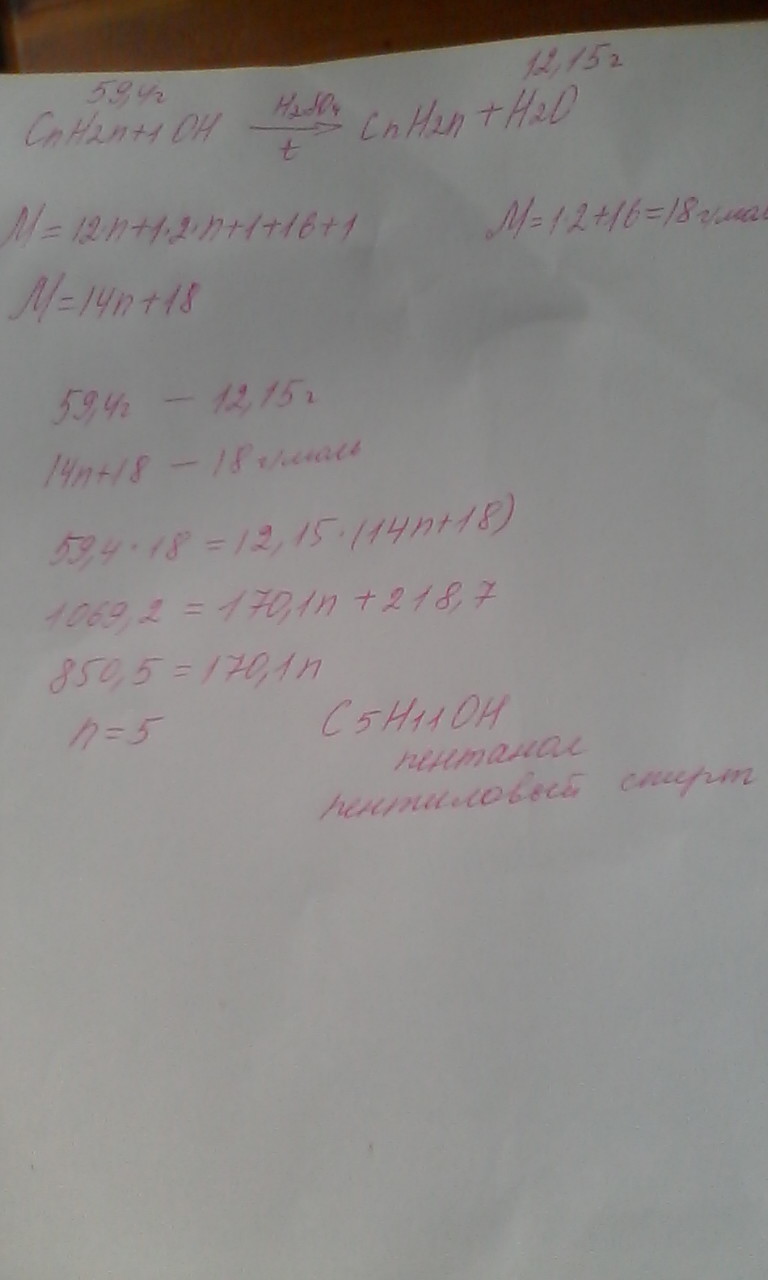 59,4г 12,15г
CnH2n+1OH H2SO4 t CnH2n + H2O
M=12n+1·2·n+1+16+1 M=1·2+16=18 г/мол
M=14n+18
59,4г — 12,15г
14n+18 — 18 г/моль
59,4·18=12,15·(14n+18)
1069,2 = 170,1n + 218,7
850,5=170,1n
n=5 C5H11OH
пентанол
пентиловый спирт